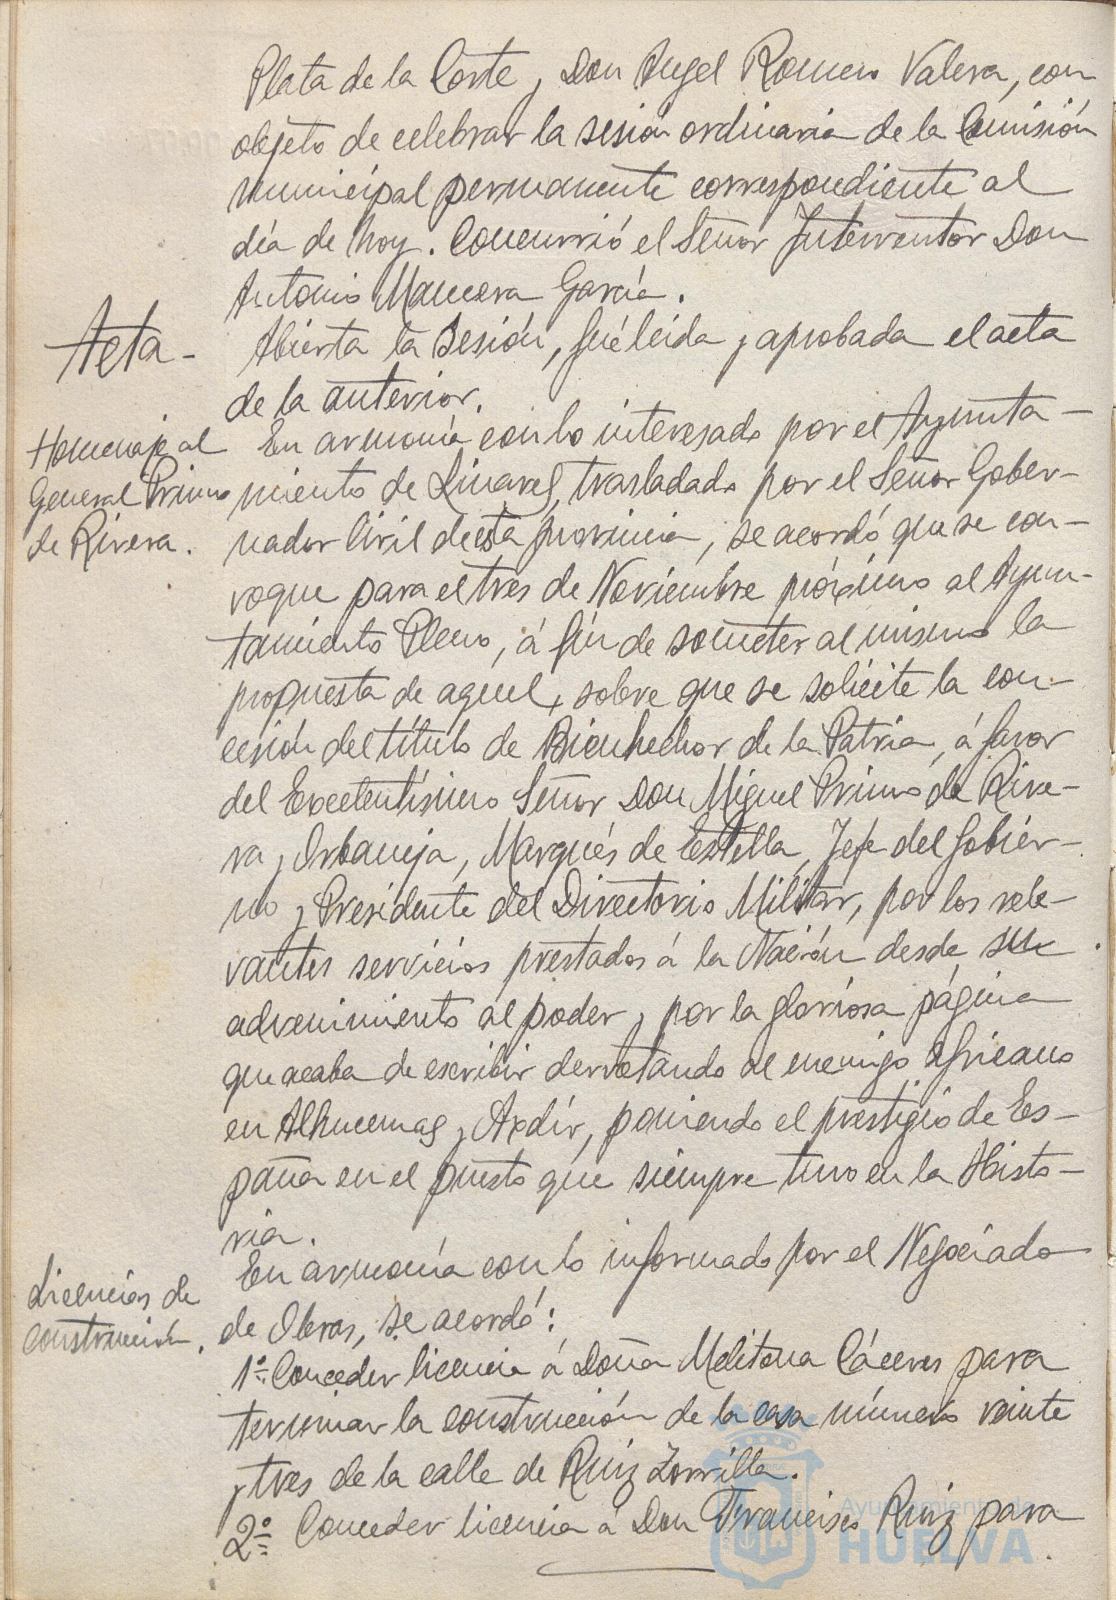 Plata de la Corte y Don Angel Romero Valera, con
objeto de celebrar la sesión ordinaria de la Comisión
municipal permanente correspondiente al
día de hoy. Concurrió el Señor Interventor Don
Antonio Mancera García.
Acta- Abierta la Sesión, fué leida y aprobada el acta
de la anterior.
Homenaje al En armonía con lo interesado por el Ayunta-
General Primo miento de Linares, trasladado por el Señor Gober-
de Rivera. nador Civil de esta provincia, se acordó que se con-
voque para el tres de Noviembre próximo al Ayun-
tamiento Pleno, á fín de someter al mismo la
propuesta de aquel, sobre que se solicite la con-
cesión del título de Bienhechor de la Patria, á favor
del Excelentísimo Señor Don Miguel Primo de Rive-
ra y Orbaneja, Marqués de Estella, Jefe del Gobier-
no y Presidente del Directorio Militar, por los rele-
vantes servicios prestados á la Nación desde su
advenimiento al poder y por la gloriosa página
que acaba de escribir derrotando al enemigo africano
en Alhucemas y Axdír, poniendo el prestigio de Es-
paña en el puesto que siempre tuvo en la Histo-
ria.
En armonía con lo informado por el Negociado
Licencias de construcción. de Obras, se acordó:
1º Conceder licencia á Doña Melitona Cáceres para
terminar la construcción de la casa número veinte
y tres de la calle de Ruiz Zorrilla.
2º Conceder licencia á Don Francisco Ruiz para
Ayuntamiento de
HUELVA